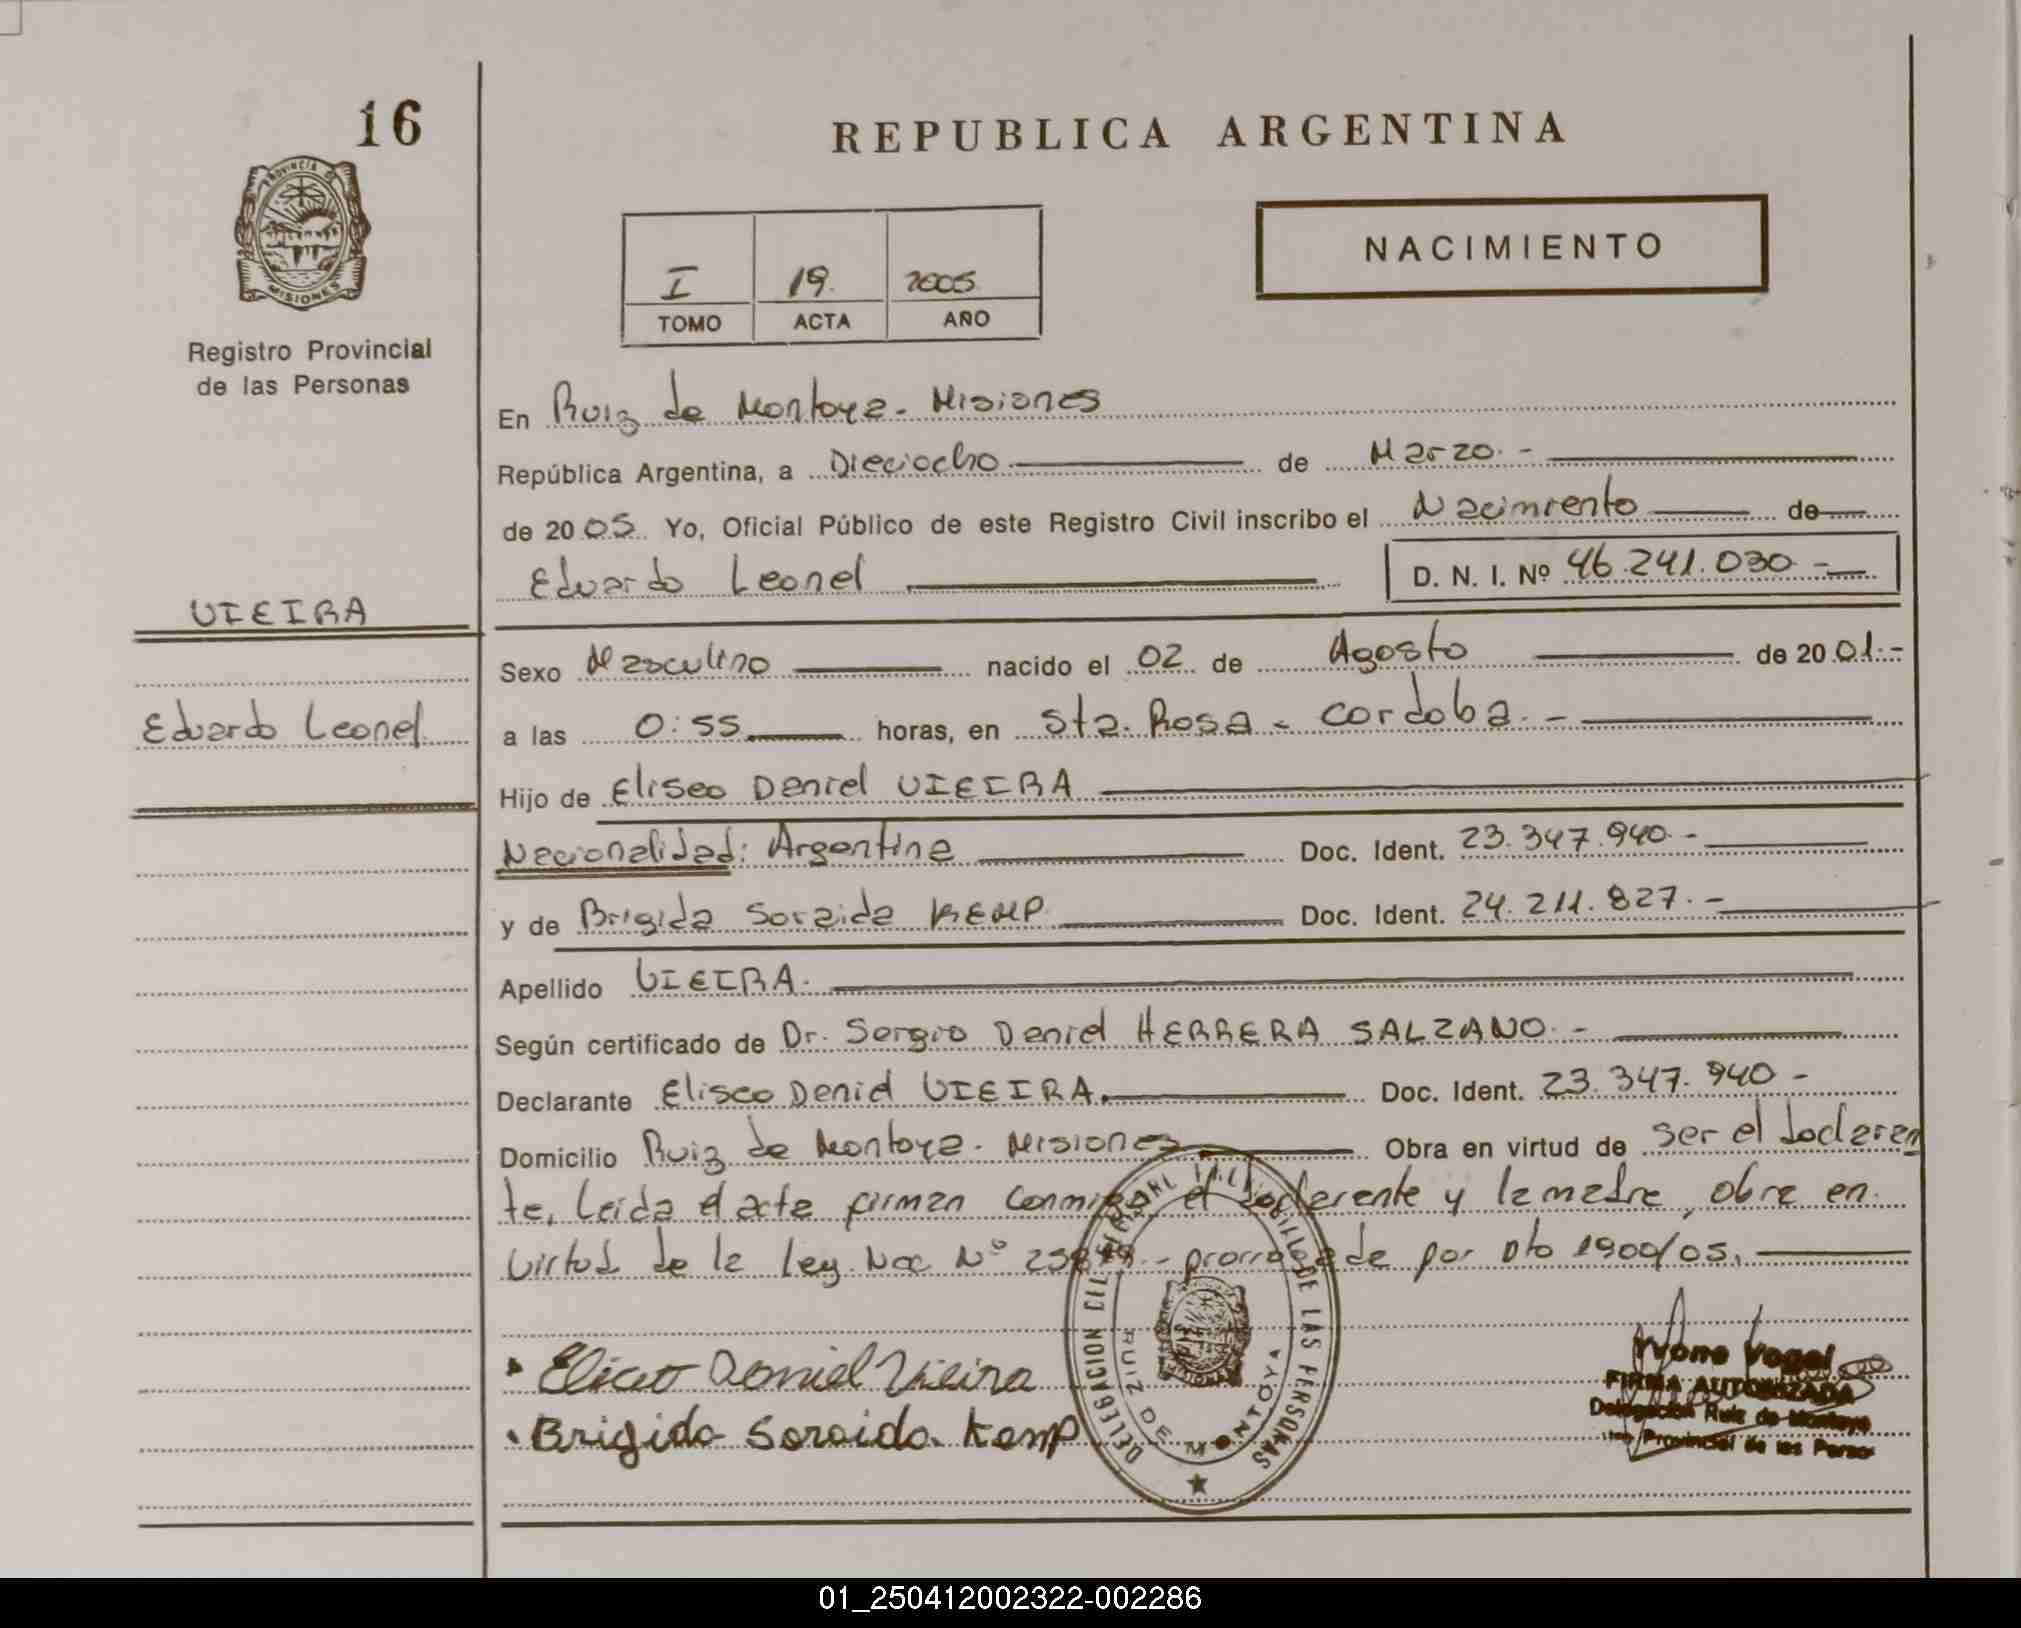 16
PROVINCIA DE
MISIONES
Registro Provincial
de las Personas
REPUBLICA ARGENTINA
NACIMIENTO
I 19. 2005
TOMO ACTA AÑO
En Ruiz de Montoya - Misiones
República Argentina, a Dieciocho de Marzo. -
de 2005. Yo, Oficial Público de este Registro Civil inscribo el Nacimiento de
Eduardo Leonel D. N. I. Nº 46.241.030 -
VIEIRA
Eduardo Leonel
Sexo Masculino nacido el 02 de Agosto de 2001.-
a las 0:55 horas, en Sta. Rosa - Cordoba. -
Hijo de Eliseo Daniel VIEIRA
Nacionalidad: Argentina Doc. Ident. 23.347.940. -
y de Brigida Soraida KEMP Doc. Ident. 24.211.827. -
Apellido VIEIRA.
Según certificado de Dr. Sergio Daniel HERRERA SALZANO. -
Declarante Eliseo Daniel VIEIRA. Doc. Ident. 23.347.940 -
Domicilio Ruiz de Montoya - Misiones Obra en virtud de ser el declaran
te. Leida el acta firman conmigo el declarante y la madre, obra en
virtud de la Ley. Nac Nº - prorrogada por Dto 1900/05.
Eliseo Daniel Vieira
Brigida Soraida Kemp
DELEGACION DEL DE LAS PERSONAS
RUIZ DE MONTOYA
Ivone Vogel
FIRMA AUTORIZADA
Delegación Ruiz de Montoya
Provincial de las Perso
01_250412002322-002286